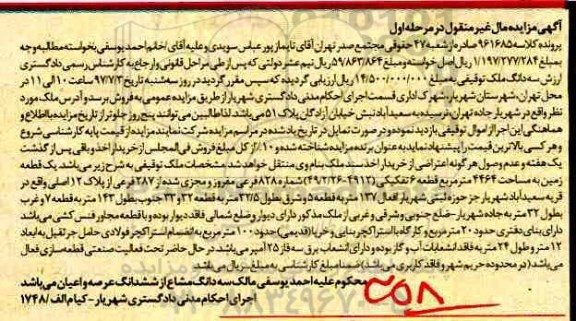 آگهی مزایده مال غیر منقول در مرحله اول
پرونده کلاسه ۹۶۱۶۸۵ صادره از شعبه ۴۷ حقوقی مجتمع صدر تهران آقای تایماز پور عباس سویدی و علیه آقای /خانم احمد یوسفی بخواسته مطالبه وجه
بمبلغ ۱/۱۹۷/۲۷۷/۲۸۴ ریال اصل خواسته و مبلغ ۵۹/۸۶۳/۸۶۴ ریال نیم عشر دولتی که پس از طی مراحل قانونی و ارجاع به کارشناس رسمی دادگستری
ارزش سه دانگ ملک توقیفی به مبلغ ۱۴/۵۰۰/۰۰۰/۰۰۰ ریال ارزیابی گردیده که سپس مقرر گردید در روز سه شنبه تاریخ ۹۷/۷/۳ ساعت ۱۰ الی ۱۱ در
محل تهران، شهرستان شهریار، شهرک اداری قسمت اجرای احکام مدنی دادگستری شهریار از طریق مزایده عمومی به فروش برسد و آدرس ملک مورد
نظر واقع در شهریار جاده تهران نرسیده به سعیدآباد نبش خیابان آزادگان پلاک ۵۱ می باشد لذا طالبین می توانند پنج روز جلوتر از تاریخ مزایده با اطلاع و
هماهنگی این اجرا از اموال توقیفی بازدید نموده و در صورت تمایل در تاریخ یاد شده در مراسم مزایده شرکت نمایند مزایده از قیمت پایه کارشناسی شروع
و هر کسی بالاترین قیمت را پیشنهاد نماید به عنوان برنده مزایده شناخته شده و ۱۰٪ از کل مبلغ فروش فی المجلس از خریدار اخذ و باقی پس از گذشت
یک هفته و عدم وصول هر گونه اعتراضی از خریدار اخذ سند ملک بنام وی منتقل خواهد شد. مشخصات ملک توقیفی به شرح زیر می باشد. یک قطعه
زمین به مساحت ۴۴۶۴ مترمربع قطعه ۶ تفکیکی شماره ۸۲۸ فرعی مفروز و مجزی شده از ۲۸۷ فرعی از پلاک ۱۲ اصلی واقع در
قریه سعیدآباد شهریار جز حوزه ثبتی شهریار بطول ۱۳۷ متر به قطعه ۵ و شرق بطول ۳۲/۵ متر به قطعه ۳۲ و ۳۳ جنوب بطول ۱۴۳ متر به قطعه ۷ و غرب
بطول ۳۲ متر به جاده شهریار - ضلع جنوبی و شرقی و غربی از ملک مذکور دارای دیوار و ضلع شمالی فاقد دیوار بوده و با قطعه مجاور فنس کشی می باشد
دارای بنای دفتری حدود ۲۰ مترمربع و کارگاه با استراکچر بنایی و خرپا (قدیمی) حدود ۱۰۰ مترمربع به انضمام استراکچر فولادی حامل جرثقیل به ابعاد
۱۲ متر و طول ۲۴ متر به فاقد انشعابات آب و گاز بوده و دارای انشعاب برق سه فاز ۲۵ آمپر می باشد در حال حاضر تحت فعالیت صنعتی قطعه سازی فعال
می باشد (در محدوده حریم شهر و فاقد کاربری می باشد) ضمنا مبلغ کارشناسی به مبلغ ریال می باشد
محکوم علیه احمد یوسفی مالک سه دانگ مشاع از ششدانگ عرصه و اعیان می باشد
اجرای احکام مدنی دادگستری شهریار - کیام الف / ۱۷۴۸